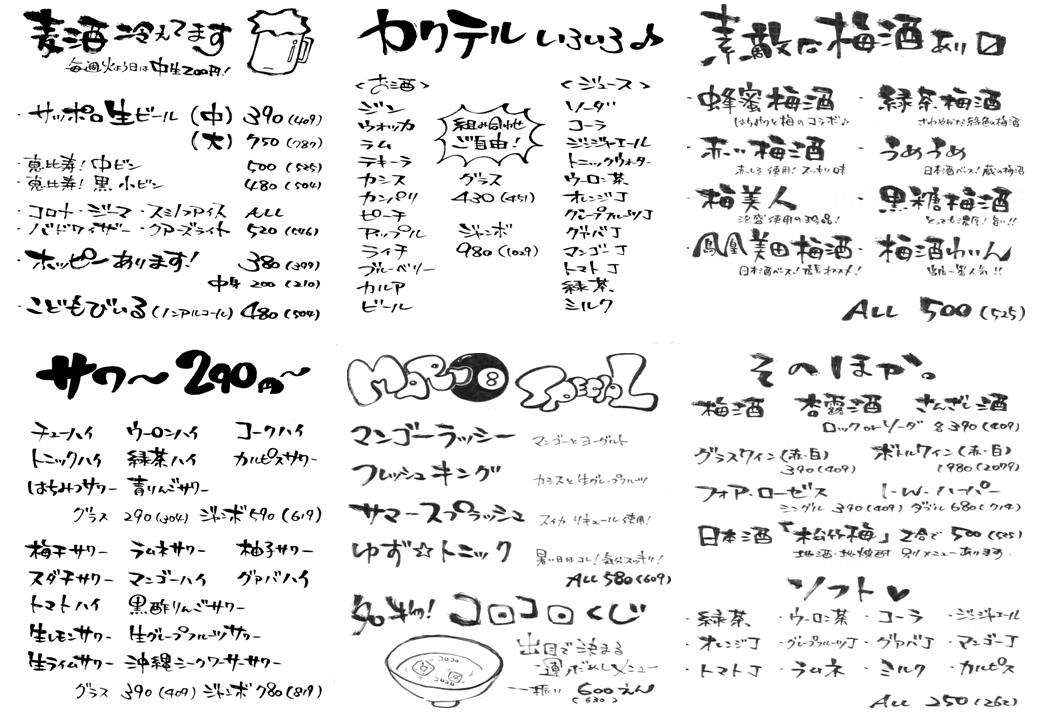 麦酒 冷えてます
毎週火よう日は中生200円!
・サッポロ生ビール (中) 390 (409)
(大) 750 (787)
・恵比寿! 中ビン 500 (525)
・恵比寿! 黒 小ビン 480 (504)
・コロナ・ジーマ・スミノフアイス ALL
・バドワイザー・クアーズライト 520 (546)
・ホッピーあります! 380 (399)
中身 200 (210)
・こどもびいる (ノンアルコール) 480 (504)
カクテル いろいろ♪
<お酒> <ジュース>
ジン ソーダ
ウォッカ 組み合わせ コーラ
ラム ご自由! ジンジャエール
テキーラ トニックウォーター
カシス グラス ウーロン茶
カンパリ 430 (451) オレンジJ
ピーチ グレープフルーツJ
アップル ジャンボ グァバJ
ライチ 980 (1029) マンゴーJ
ブルーベリー トマトJ
カルア 緑茶
ビール ミルク
素敵な梅酒あり□
・蜂蜜梅酒 ・緑茶梅酒
はちみつと梅のコラボ♪ さわやかな緑色の梅酒
・赤い梅酒 ・うめうめ
赤しそ使用! スッキリ味 日本酒ベース! 蔵の梅酒
・梅美人 ・黒糖梅酒
泡盛使用の逸品! とっても濃厚! 旨い!!
・鳳凰美田梅酒 ・梅酒わいん
日本酒ベース! 店長オススメ! 当店一番人気!!
ALL 500 (525)
サワー 290円~
チューハイ ウーロンハイ コークハイ
トニックハイ 緑茶ハイ カルピスサワー
はちみつサワー 青りんごサワー
グラス 290 (304) ジャンボ 590 (619)
梅干サワー ラムネサワー 柚子サワー
スダチサワー マンゴーハイ グァバハイ
トマトハイ 黒酢りんごサワー
生レモンサワー 生グレープフルーツサワー
生ライムサワー 沖縄シークワーサーサワー
グラス 390 (409) ジャンボ 780 (819)
MARU 8 SPECIAL
マンゴーラッシー マンゴーとヨーグルト
フレッシュキング カシスと生グレープフルーツ
サマースプラッシュ スイカリキュール使用!
ゆず☆トニック 暑い日はコレ! 気分スッキリ!
ALL 580 (609)
名物! コロコロくじ
出目で決まる
運だめしメニュー
一振い 600えん
(630)
そのほか。
梅酒 杏露酒 さんざし酒
ロック or ソーダ 各390 (409)
グラスワイン (赤・白) ボトルワイン (赤・白)
390 (409) 1980 (2079)
フォア・ローゼス I・W・ハーパー
シングル 390 (409) ダブル 680 (714)
日本酒「松竹梅」 2合で 500 (525)
地酒・地焼酎 別メニューあります。
ソフト♥
・緑茶 ・ウーロン茶 ・コーラ ・ジンジャエール
・オレンジJ ・グレープフルーツJ ・グァバJ ・マンゴーJ
・トマトJ ・ラムネ ・ミルク ・カルピス
ALL 250 (262)